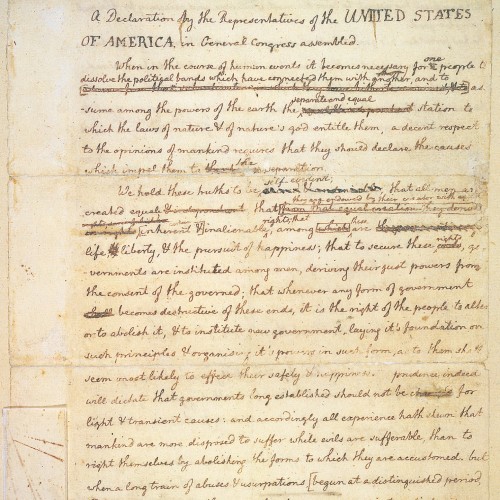 A Declaration by the Representatives of the UNITED STATES
OF AMERICA, in General Congress assembled.
When in the course of human events it becomes necessary for one people to
dissolve the political bands which have connected them with another, and to
as-
separate and equal
-sume among the powers of the earth the station to
which the laws of nature & of nature's god entitle them, a decent respect
to the opinions of mankind requires that they should declare the causes
which impel them to the separation.
self-evident;
We hold these truths to be that all men are
they are endowed by their creator with
created equal & independant that from that equal creation they derive
rights; that these
inherent & inalienable, among which are
rights
life, & liberty, & the pursuit of happiness; that to secure these ends, go-
-vernments are instituted among men, deriving their just powers from
the consent of the governed; that whenever any form of government
shall becomes destructive of these ends, it is the right of the people to alter
or to abolish it, & to institute new government, laying it's foundation on
such principles & organising it's powers in such form, as to them shall
seem most likely to effect their safety & happiness. prudence indeed
will dictate that governments long established should not be for
light & transient causes: and accordingly all experience hath shewn that
mankind are more disposed to suffer while evils are sufferable, than to
right themselves by abolishing the forms to which they are accustomed. but
when a long train of abuses & usurpations [begun at a distinguished period,